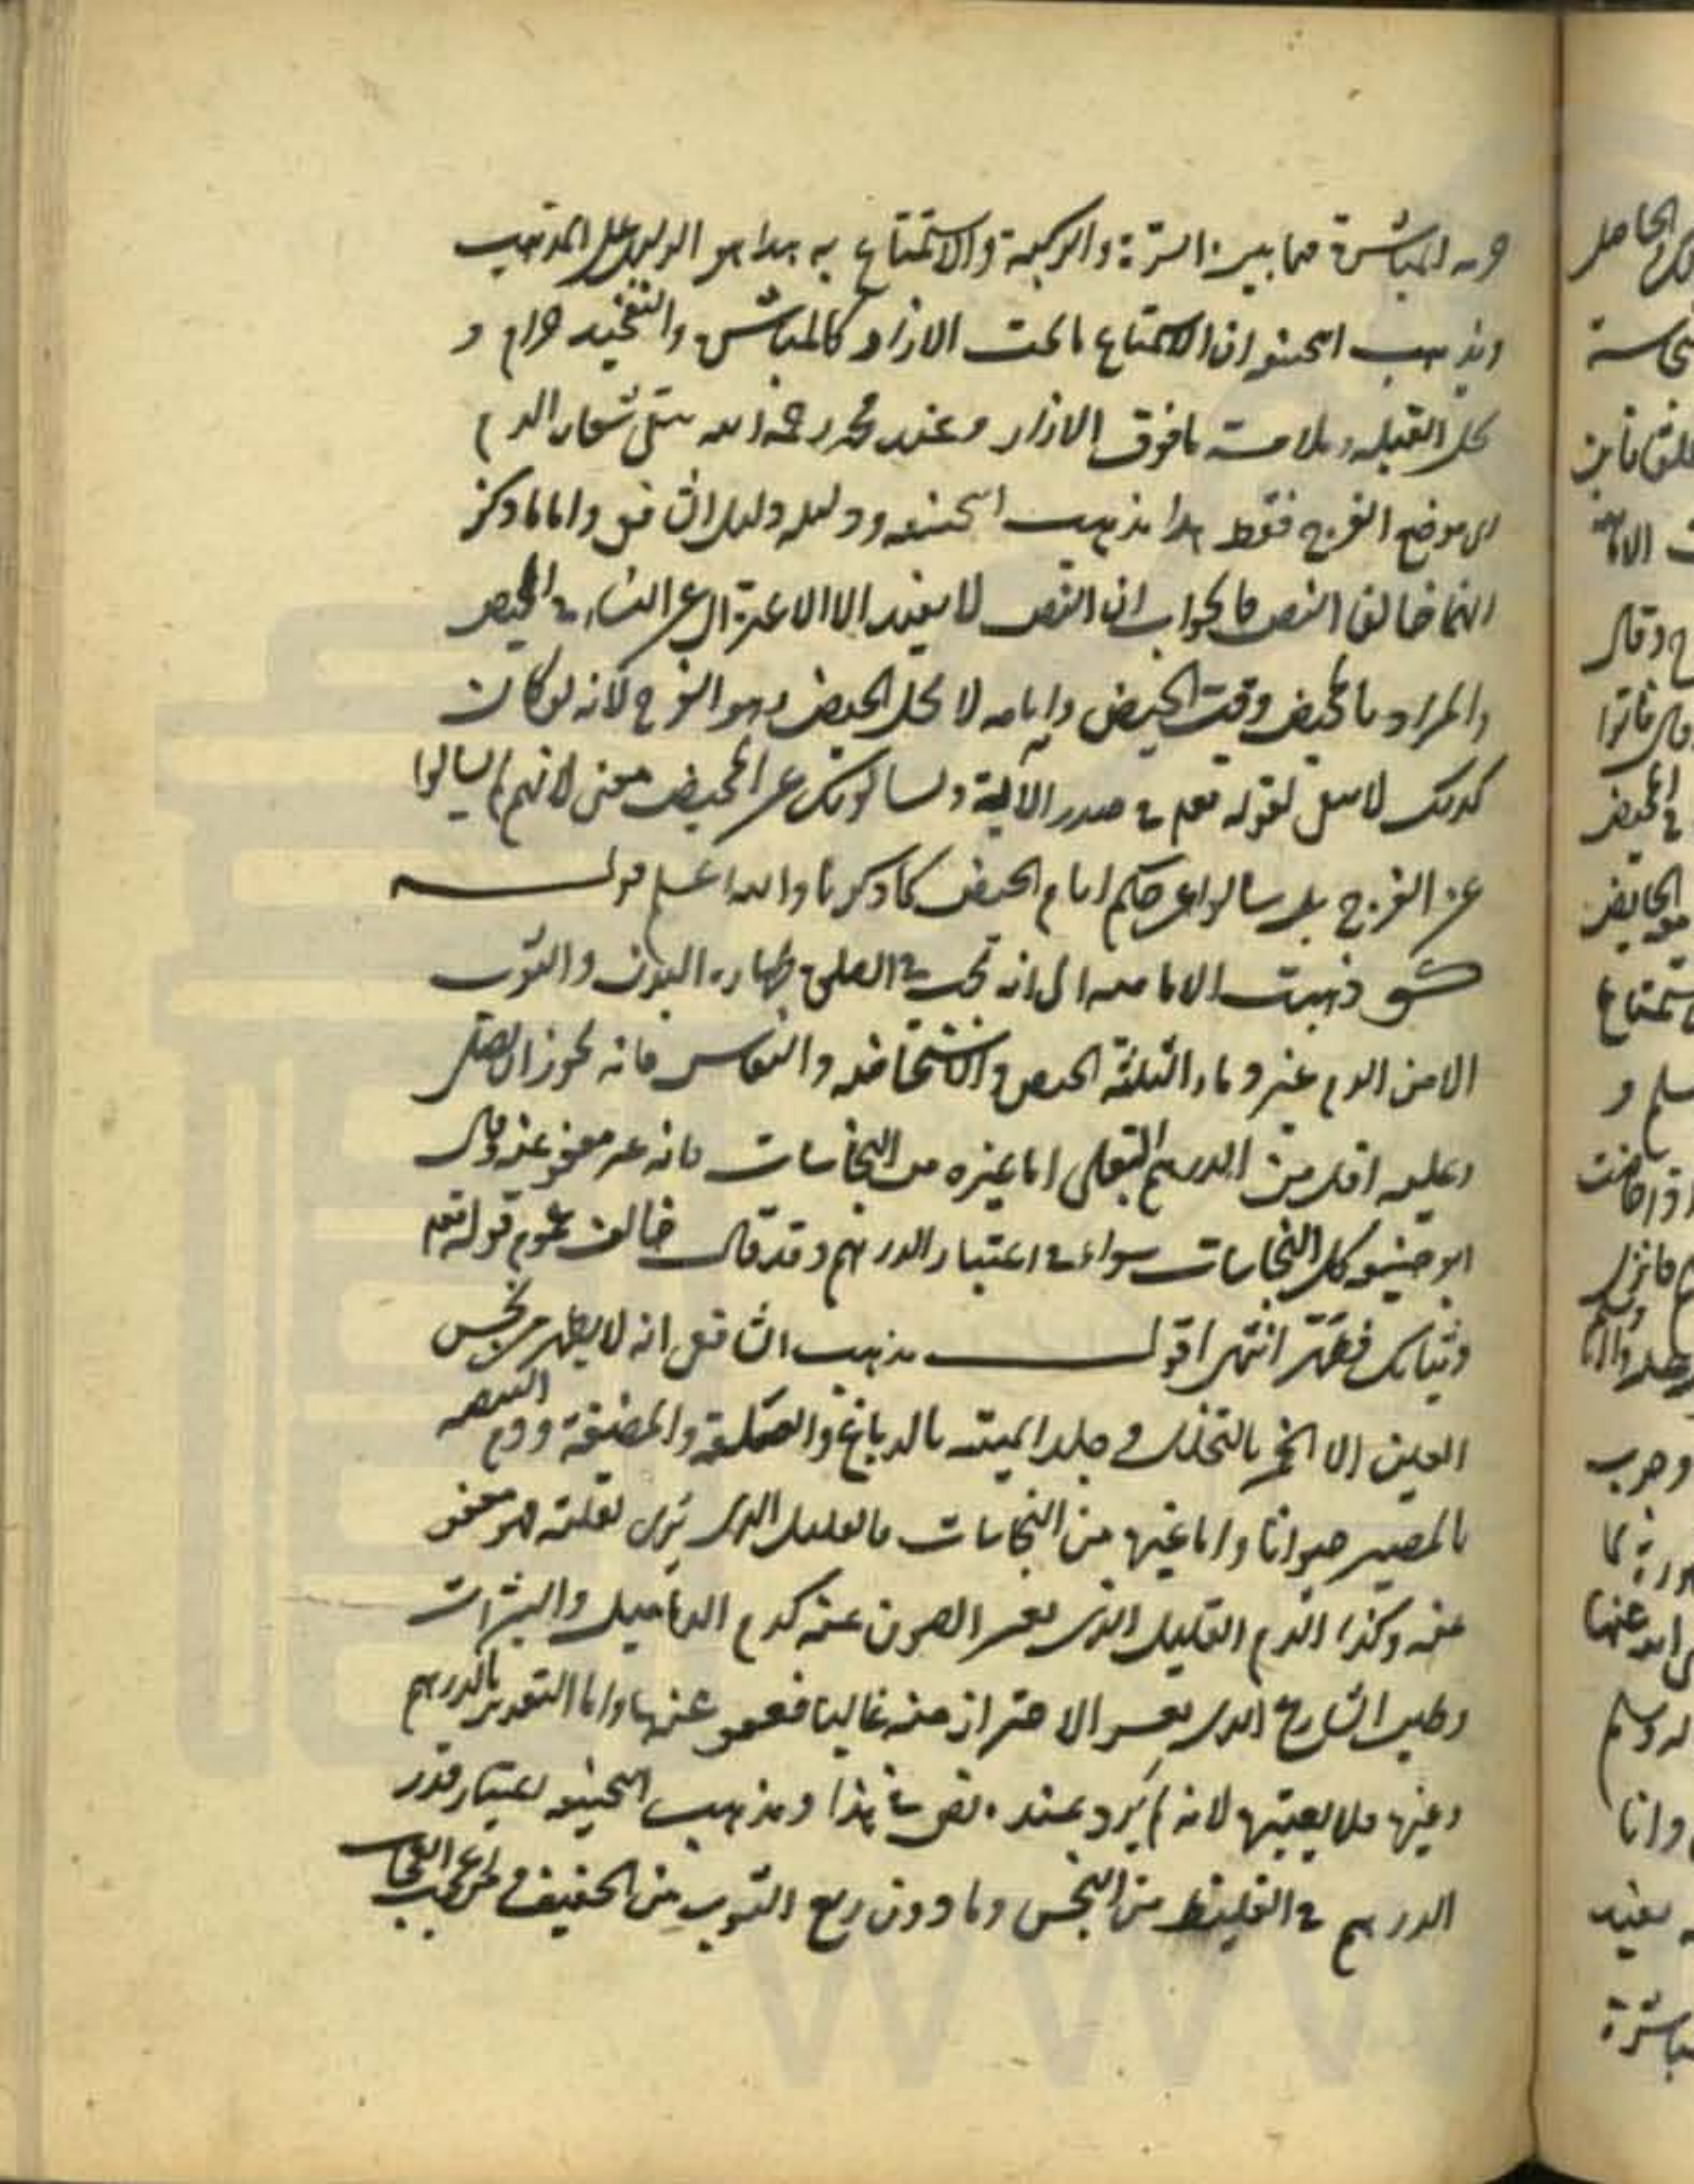 حرمة المباشرة فيما بين السترة والركبة والاستمتاع به هذا هو الدليل على المذهب
ومذهب ابيحنيفه ان الاستمتاع ما تحت الازار كالمباشرة والتفخيذ حرام و
تحل القبلة وملامسة ما فوق الازار وعند محمد رحمه الله يتقى شعار الدم
اى موضع الفرج فقط هذا مذهب ابيحنيفه ودليله دليل الشافعى واما ما ذكر
انهما خالفا النص فالجواب ان النص لا يفيد الا الاعتزال عن النساء فى المحيض
والمراد بالمحيض وقت الحيض وايامه لا محل الحيض وهو الفرج لانه لو كان
كذلك لا لقوله تعم فى صدر الآية ويسالونك عن المحيض معنى لانهم لم يسالوا
عن الفرج بل سالوا عن حكم ايام الحيض كما ذكرنا والله اعلم قوله
ذهبت الاماميه الى انه تجب فى الصلوة طهارة البدن والثوب
الا من الدم غير دماء الثلثة الحيض والاستحاضه والنفاس فانه يجوز ان يصلى
وعليه اقل من الدرهم البغلى اما غيره من النجاسات فانه غير معفو عنه وقال
ابو حنيفه كل النجاسات سواء فى اعتبار الدرهم وقد خالف عموم قوله تعم
وثيابك فطهر انتهى اقول مذهب الشافعى انه لا يطهر نجس
العين الا الخمر بالتخلل و جلد الميته بالدباغ والعلقة والمضغة ودم البيضه
بالمصير حيوانا واما غيرها من النجاسات فالقليل الذى لقلته فهو معفو
عنه وكذا الدم القليل الذى يعسر الصون عنه كدم الدماميل والبثرات
وطين الشارع الذى يعسر الاحتراز عنه غالبا فمعفو عنها واما التقدير بالدرهم
وغيرها فلا يعتبرها لانه لم يرد عنده نص فى هذا ومذهب ابيحنيفه اعتبار قدر
الدرهم فى الغليظ من النجس وما دون ربع الثوب من الخفيف